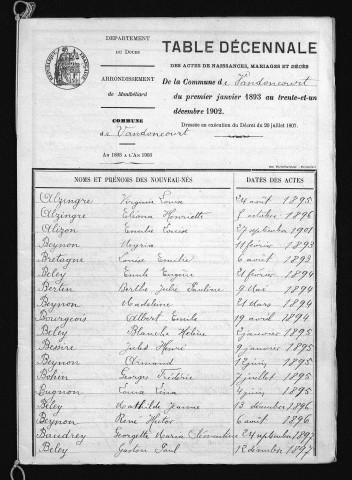 DÉPARTEMENT
DU DOUBS
ARRONDISSEMENT
de Montbéliard
COMMUNE
de Vandoncourt
AN 1893 A L'AN 1903
TABLE DÉCENNALE
DES ACTES DE NAISSANCES, MARIAGES ET DÉCÈS
De la Commune de Vandoncourt
du premier janvier 1893 au trente-et-un
décembre 1902.
Dressée en exécution du Décret du 20 juillet 1807.
NOMS ET PRÉNOMS DES NOUVEAU-NÉS DATES DES ACTES
Alzingre Virginie Louise 24 août 1895
Alzingre Eliana Henriette 1 octobre 1896
Alizon Emilie Louise 27 septembre 1901
Beynon Meyria 11 février 1893
Bretagne Louise Emilie 6 août 1893
Beley Emile Eugène 21 février 1894
Bertin Berthe Julie Pauline 9 Mai 1894
Beynon Madeleine 21 Mars 1894
Bourgeois Albert Emile 19 avril 1894
Beley Blanche Hélène 2 janvier 1895
Besnre Jules Henri 9 janvier 1895
Beynon Armand 12 juin 1895
Bohin Georges Frédéric 7 juillet 1895
Bugnon Louisa Lina 4 juin 1895
Beley Mathilde Jeanne 13 décembre 1896
Beynon René Hector 6 août 1896
Baudrey Georgette Maria Clémentine 24 septembre 1897
Beley Gaston Paul 18 décembre 1897